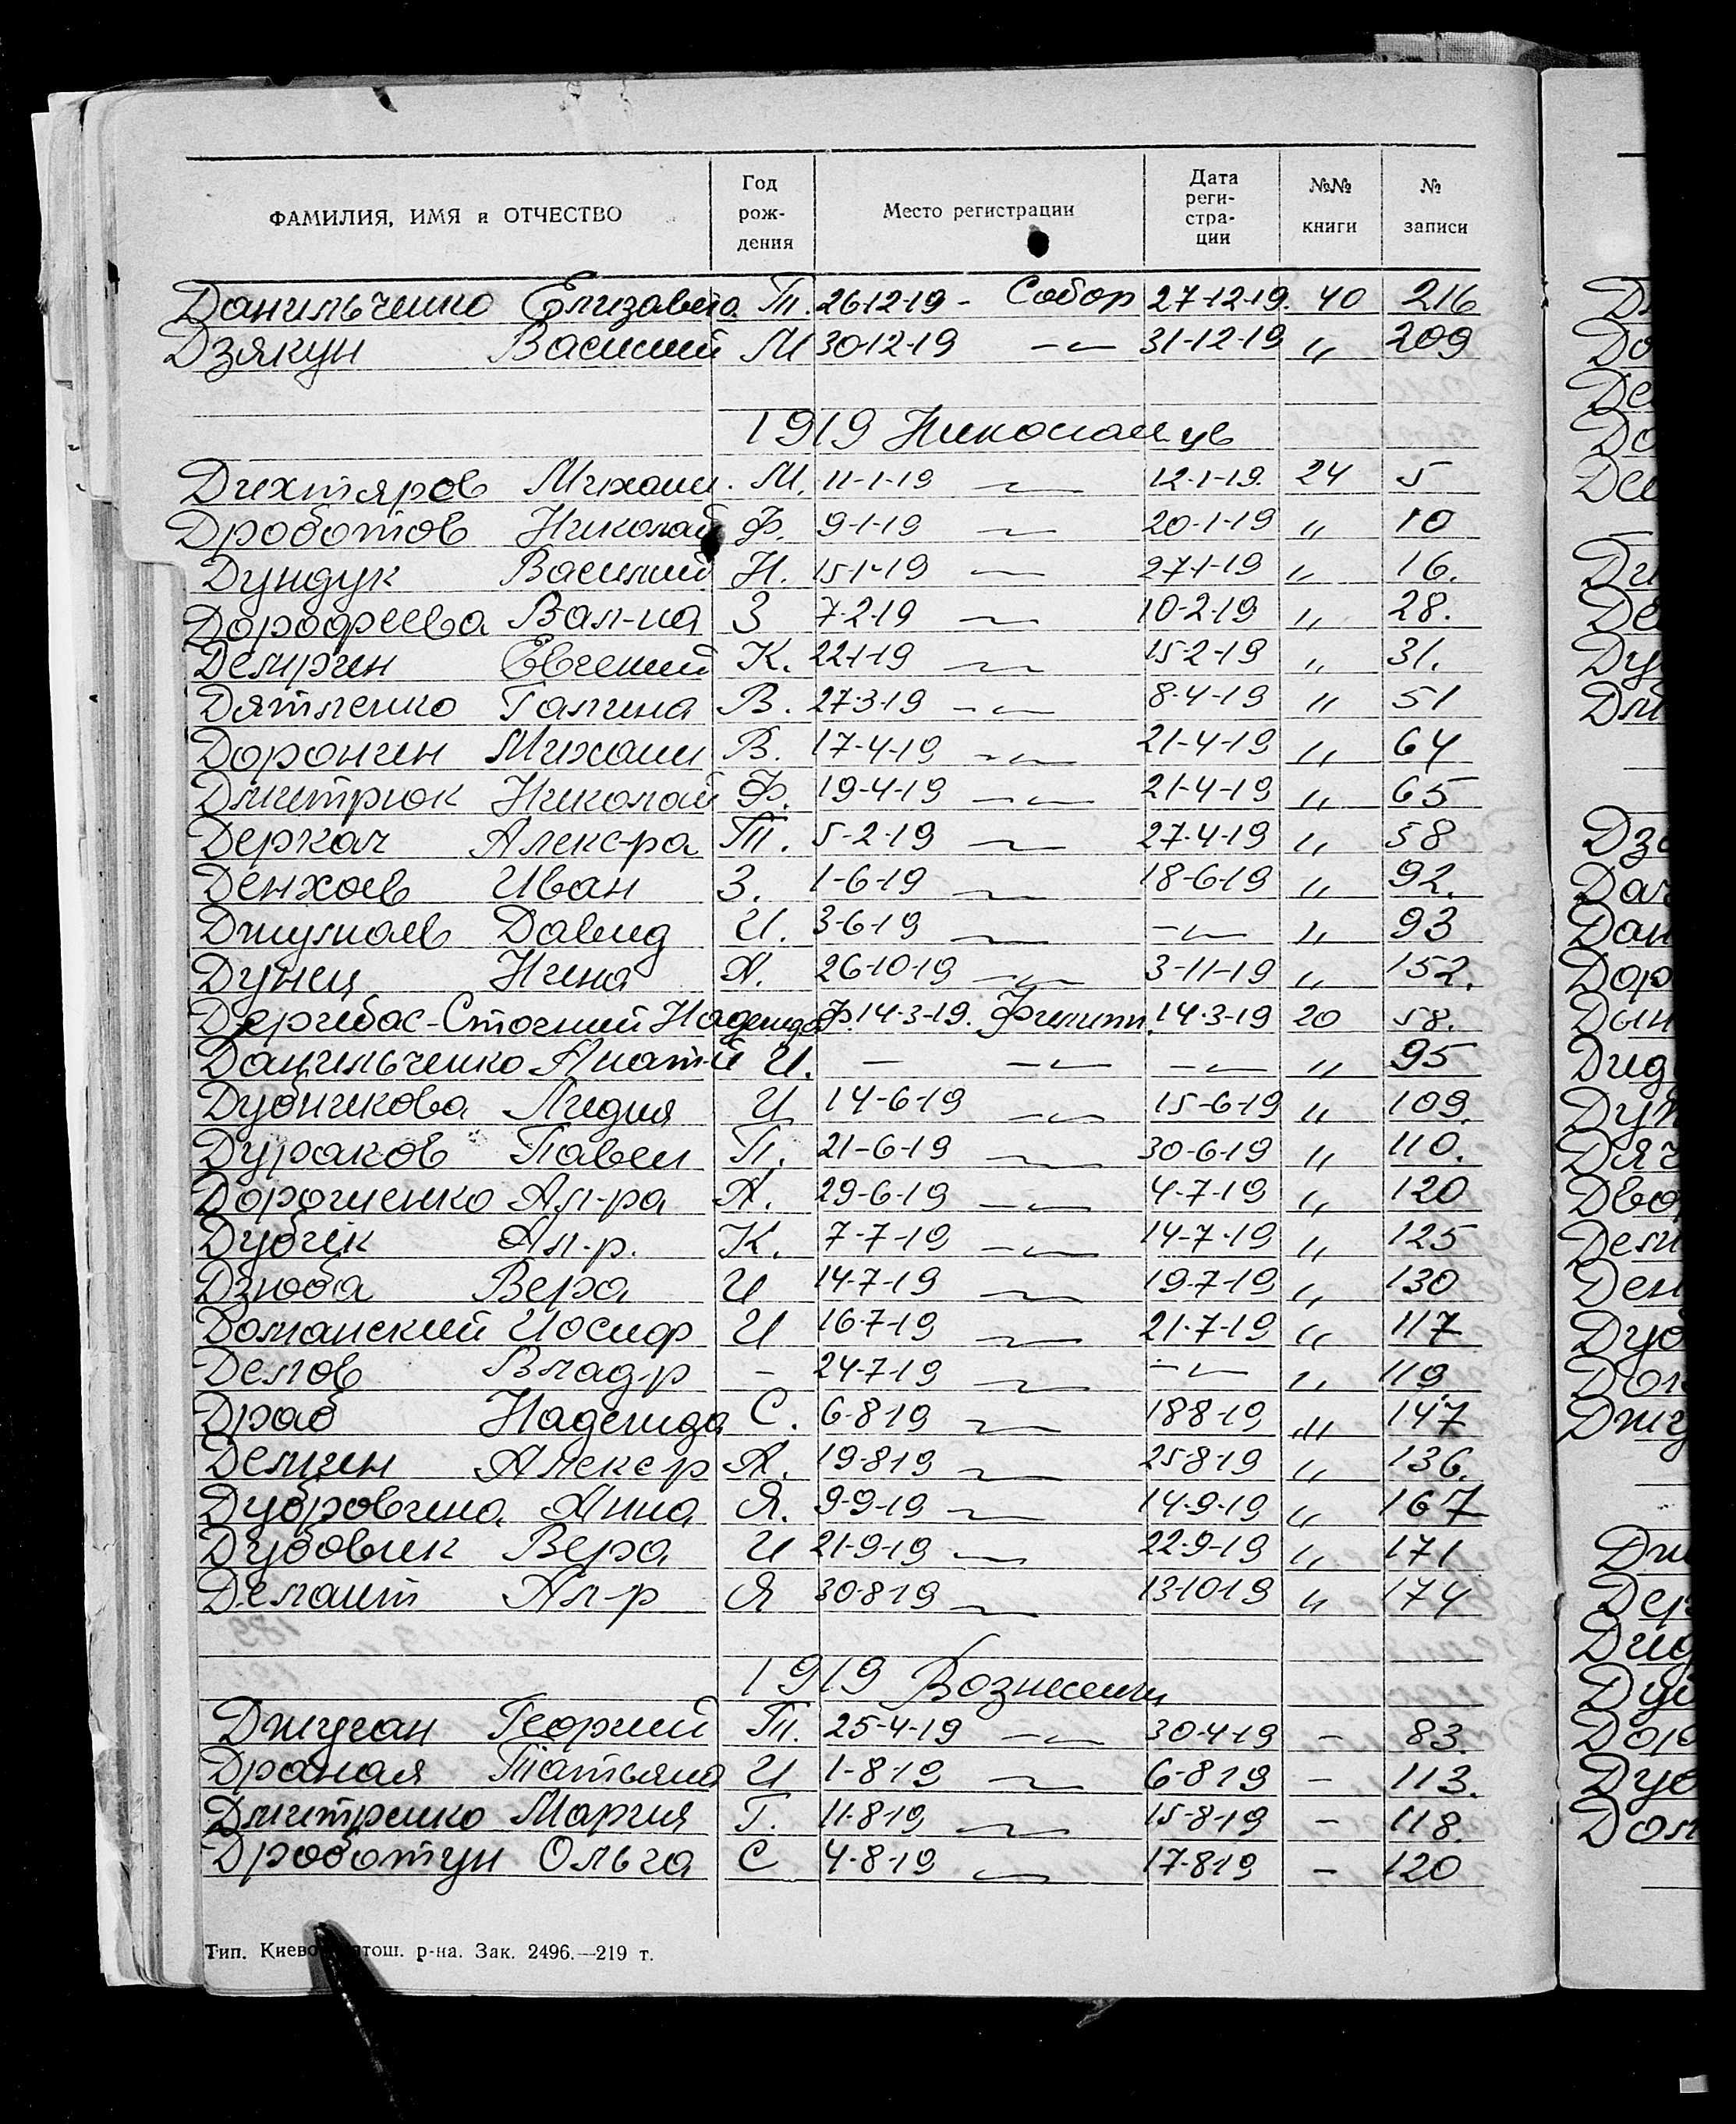 ФАМИЛИЯ, ИМЯ и ОТЧЕСТВО Год рождения Место регистрации Дата регистрации №№ книги № записи
Данильченко Елизавета Т. 26-12-19 - Собор 27-12-19. 40 216
Дзякун Василий М 30-12-19 -"- 31-12-19 " 209
1919 Николаев цв
Дихтяров Михаил. М. 11-1-19 -"- 12-1-19. 24 5
Дроботов Николай Ф. 9-1-19 -"- 20-1-19 " 10
Дундук Василий Н. 15-1-19 -"- 27-1-19 " 16.
Дорофеева Вал-на З 7-2-19 -"- 10-2-19 " 28.
Демркин Евгений К. 22-1-19 -"- 15-2-19 " 31.
Дятленко Галина В. 27-3-19 -"- 8-4-19 " 51
Доронин Михаил В. 17-4-19 -"- 21-4-19 " 64
Дмитрюк Николай Ф. 19-4-19 -"- 21-4-19 " 65
Деркач Алекс-ра Т. 5-2-19 -"- 27-4-19 " 58
Денхаев Иван З. 1-6-19 -"- 18-6-19 " 92.
Джумаев Давид И. 3-6-19 -"- -"- " 93
Дунец Нина А. 26-10-19 -"- 3-11-19 " 152.
Дерибас-Сточний Надежда Ф. 14-3-19. Филипп. 14-3-19 20 58.
Данильченко Анат-й И. - -"- -"- " 95
Дубникова Лидия И 14-6-19 -"- 15-6-19 " 109
Дураков Павел П. 21-6-19 -"- 30-6-19 " 110.
Дорошенко Ал-ра А. 29-6-19 -"- 4-7-19 " 120
Дубчік Ал-р. К. 7-7-19 -"- 14-7-19 " 125
Дзюба Вера И 14-7-19 -"- 19-7-19 " 130
Доманский Иосиф И 16-7-19 -"- 21-7-19 " 117
Делов Влад-р - 24-7-19 -"- -"- " 119
Драб Надежда С. 6-8-19 -"- 18-8-19 " 147
Демин Алекс р А. 19-8-19 -"- 25-8-19 " 136.
Дубровина Анна Я. 9-9-19 -"- 14-9-19 " 167
Дубовик Вера И 21-9-19 -"- 22-9-19 " 171
Ал-р Я 30-8-19 -"- 13-10-19 " 174
1919 Вознесенц
Джуган Георгий Т. 25-4-19 -"- 30-4-19 - 83.
Драная Татьяна И 1-8-19 -"- 6-8-19 - 113.
Дмитренко Мария Г. 11-8-19 -"- 15-8-19 - 118.
Дроботун Ольга С 4-8-19 -"- 17-8-19 - 120
Тип. Киево- р-на. Зак. 2496.—219 т.